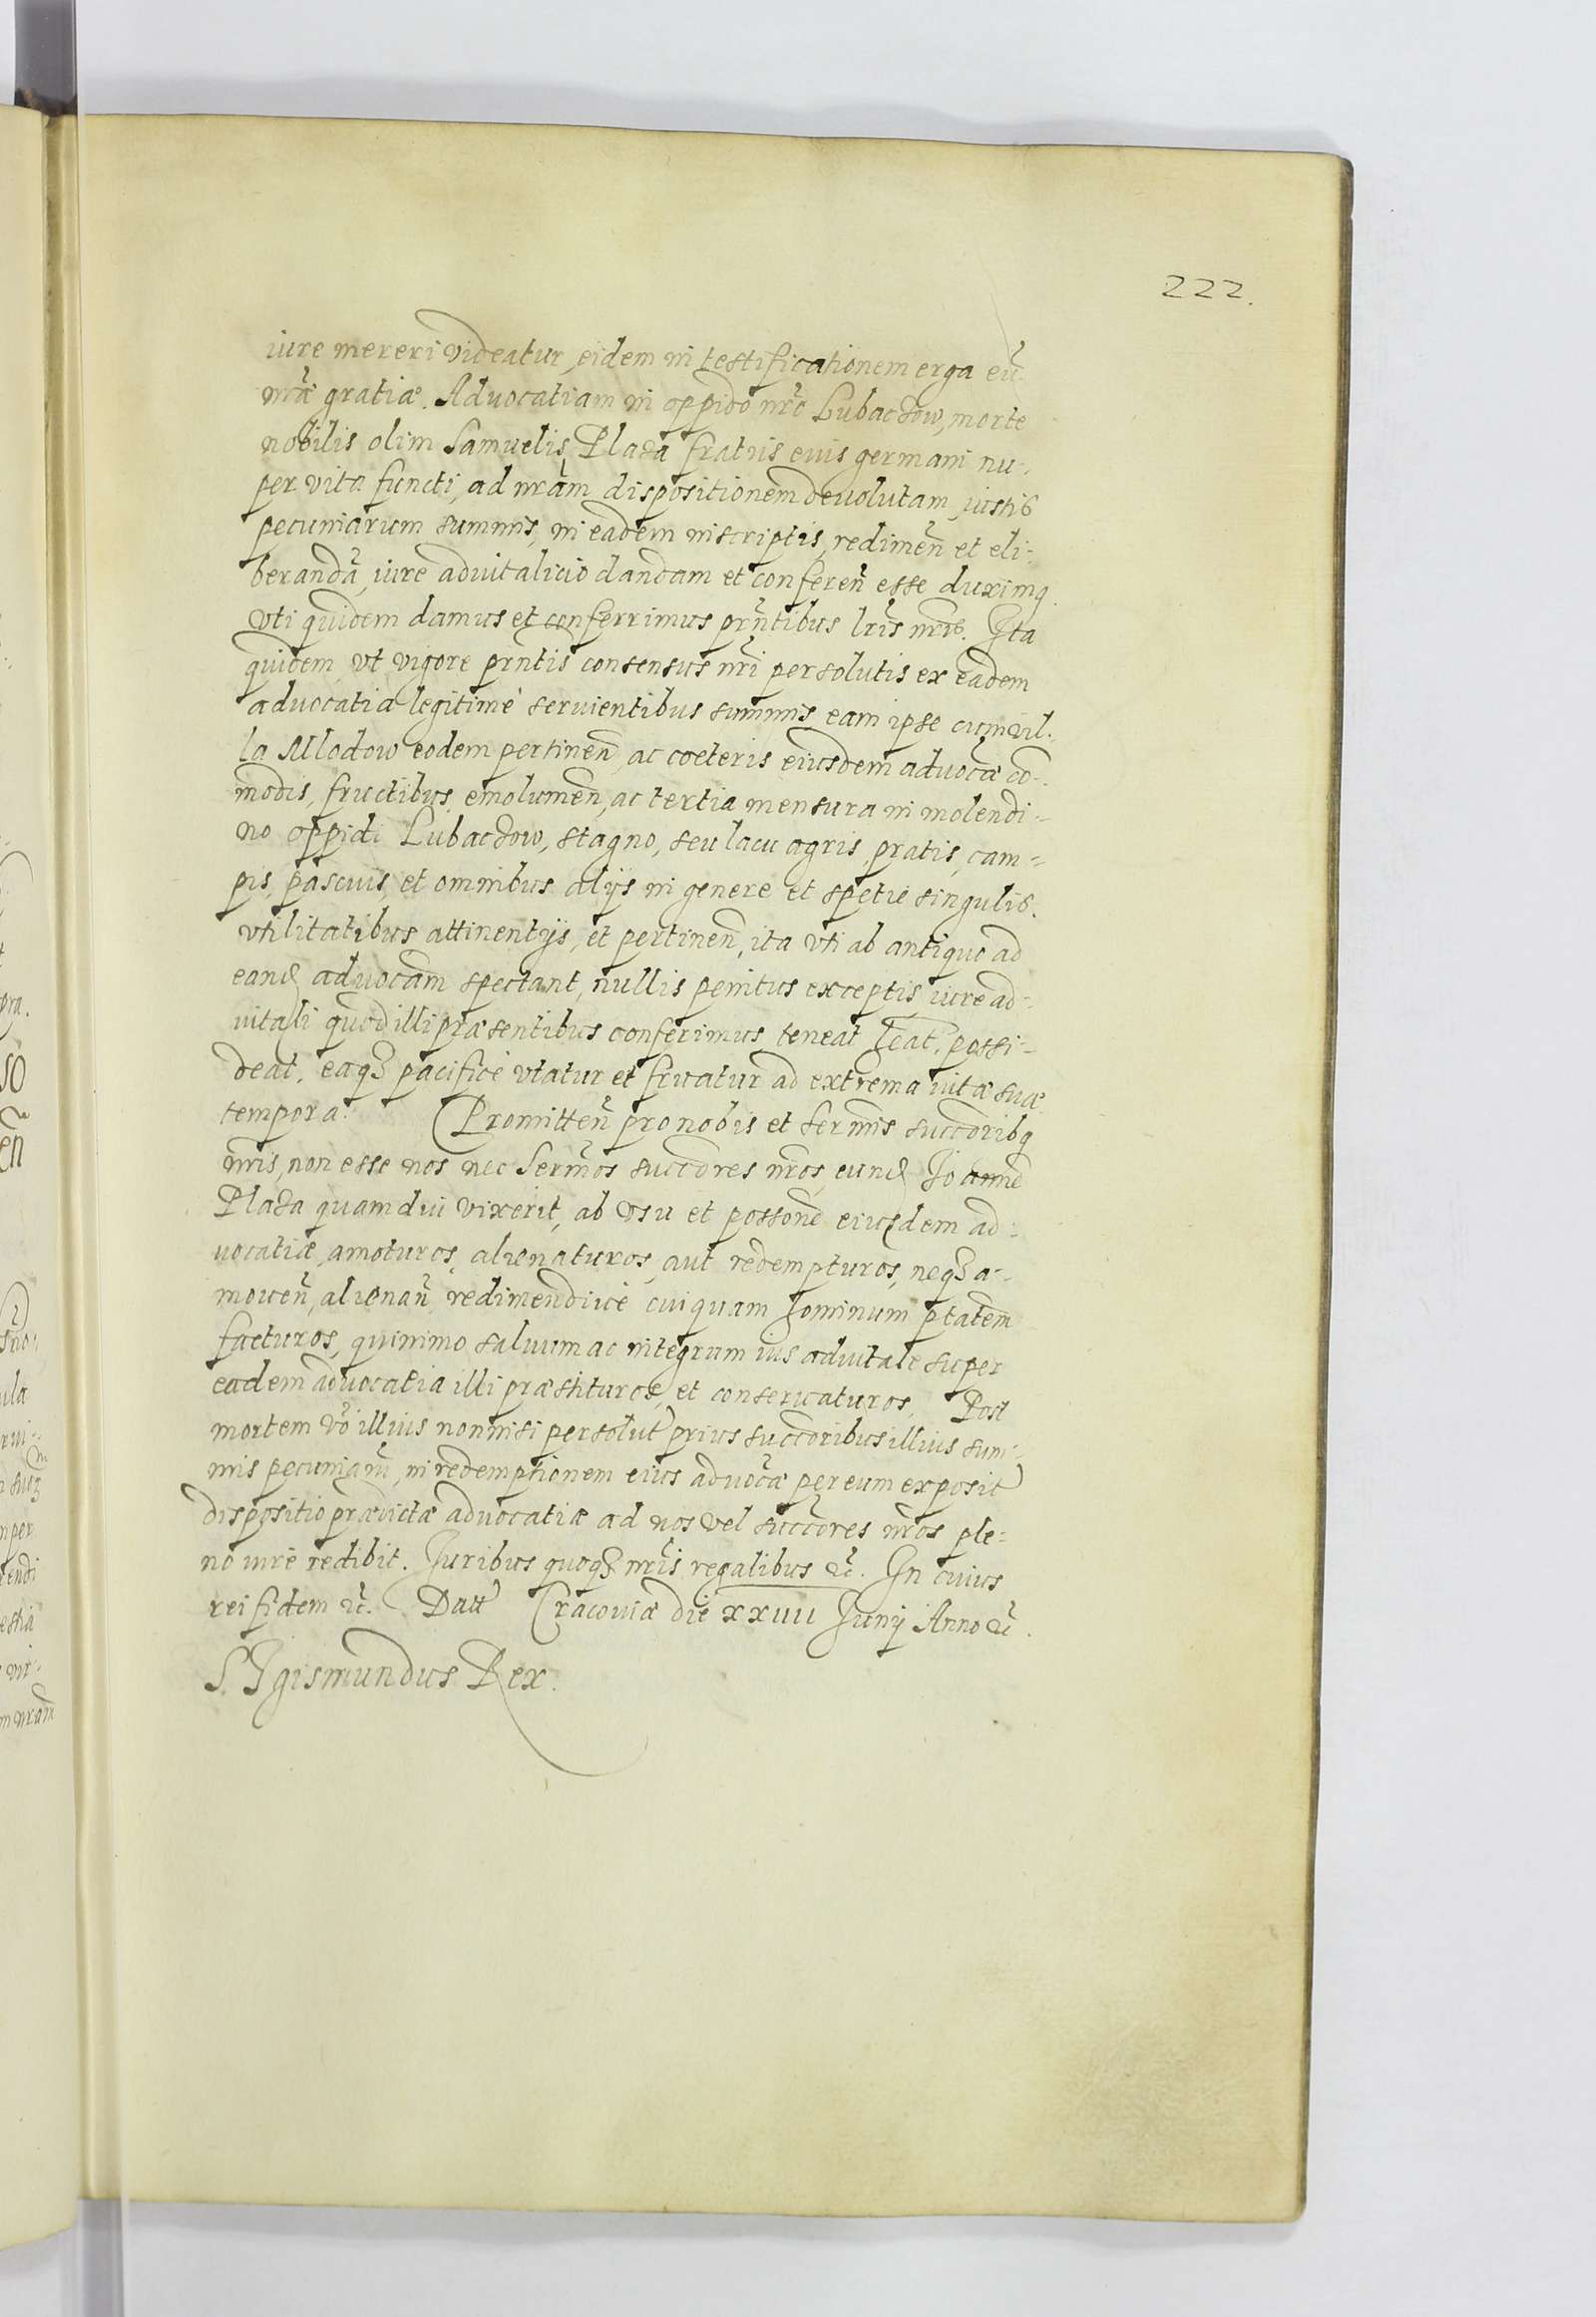 222.
iure mereri videatur, eidem in testificationem erga eũ
nr̃ã gratiæ. Advocatiam in oppido nr̃o Lubaczow, morte
nobilis olim Samuelis Plaza fratris euis germani nu-
per vita functi, ad nr̃am dispositionem devolutam, iustis
pecuniarum summis, in eadem inscriptis, redimeñ et eli-
berandã, iure advitalicio dandam et confereñ esse duximq
vti quidem damus et conferrimus prñtibus lr̃is nr̃is. Ita
quidem, vt vigore prñtis consensus nr̃i persolutis ex eadem
advocatia legitimè seruientibus summis, eam ipse cum vil-
la Mlodow eodem pertineñ, ac coeteris eiusdem advocãe cõ-
modis, fructibus, emolumeñ, ac tertia mensura in molendi-
no oppidi Lubaczow, stagno, seu lacu agris, pratis, cam=
pis, pascuis, et omnibus alijs in genere et spetie singulis.
vtilitatibus attinentijs, et pertineñ, ita vti ab antiquo ad
eand advocãm spectant, nullis penitus exceptis iure ad-
vitali quod illi præsentibus conferimus, teneat heat, possi-
deat, eaqȝ pacificè vtatur et fruatur ad extrema vitæ suæ
tempora. Promitteñ pro nobis et Sermis succõribq
nr̃is, non esse nos nec Serm̃os succõres nr̃os, eund Joannẽ
Plaza quamdiu vixerit, ab vsu et possonẽ eiusdem ad-
vocatiæ, amoturos, alienaturos, aut redempturos, neqȝ a-
moueñ, alienañ redimendiue cuiquam hominum ptatẽm
facturos, quinimo saluum ac integrum ius advitale super
eadem advocatia illi præstituros, et conseruaturos. Post
mortem võ illius nonnisi persolut prius succõribus illius sum-
mis pecuniarũ, in redemptionem eius advocãe per eum exposit
dispositio prædictæ advocatiæ ad nos vel succõres nr̃os ple-
no iure redibit. Iuribus quoqȝ nr̃is regalibus &c̃. In cuius
rei fidem &c̃. Datt Cracouiæ die xxiiii Junij Anno &c̃.
SIgismundus Rex.